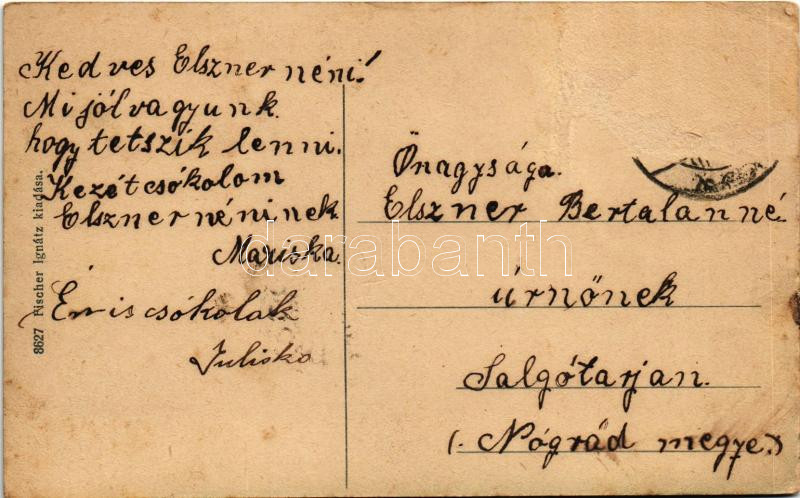 Kedves Elsznernéni!
Mi jól vagyunk
hogy tetszik lenni.
Kezét csókolom
Elsznernéninek
Mariska.
Én is csókolak
Juliska
8627 Fischer Ignátz kiadása.
Önagysága.
Elszner Bertalanné
úrnőnek
Salgótarjan.
(. Nógrád megye.)
darabanth